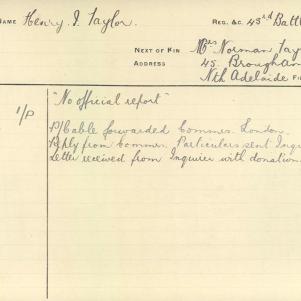 NAME Henry. J. Taylor. REG. &C. 43rd Batt
NEXT OF KIN Mrs Norman Tay
ADDRESS 45. Brougham
Nth Adelaide
1/P "No official report"
P/Cable forwarded Commrs. London.
Reply from Commrs. Particulars sent Inqu
Letter received from Inquirer with donation.